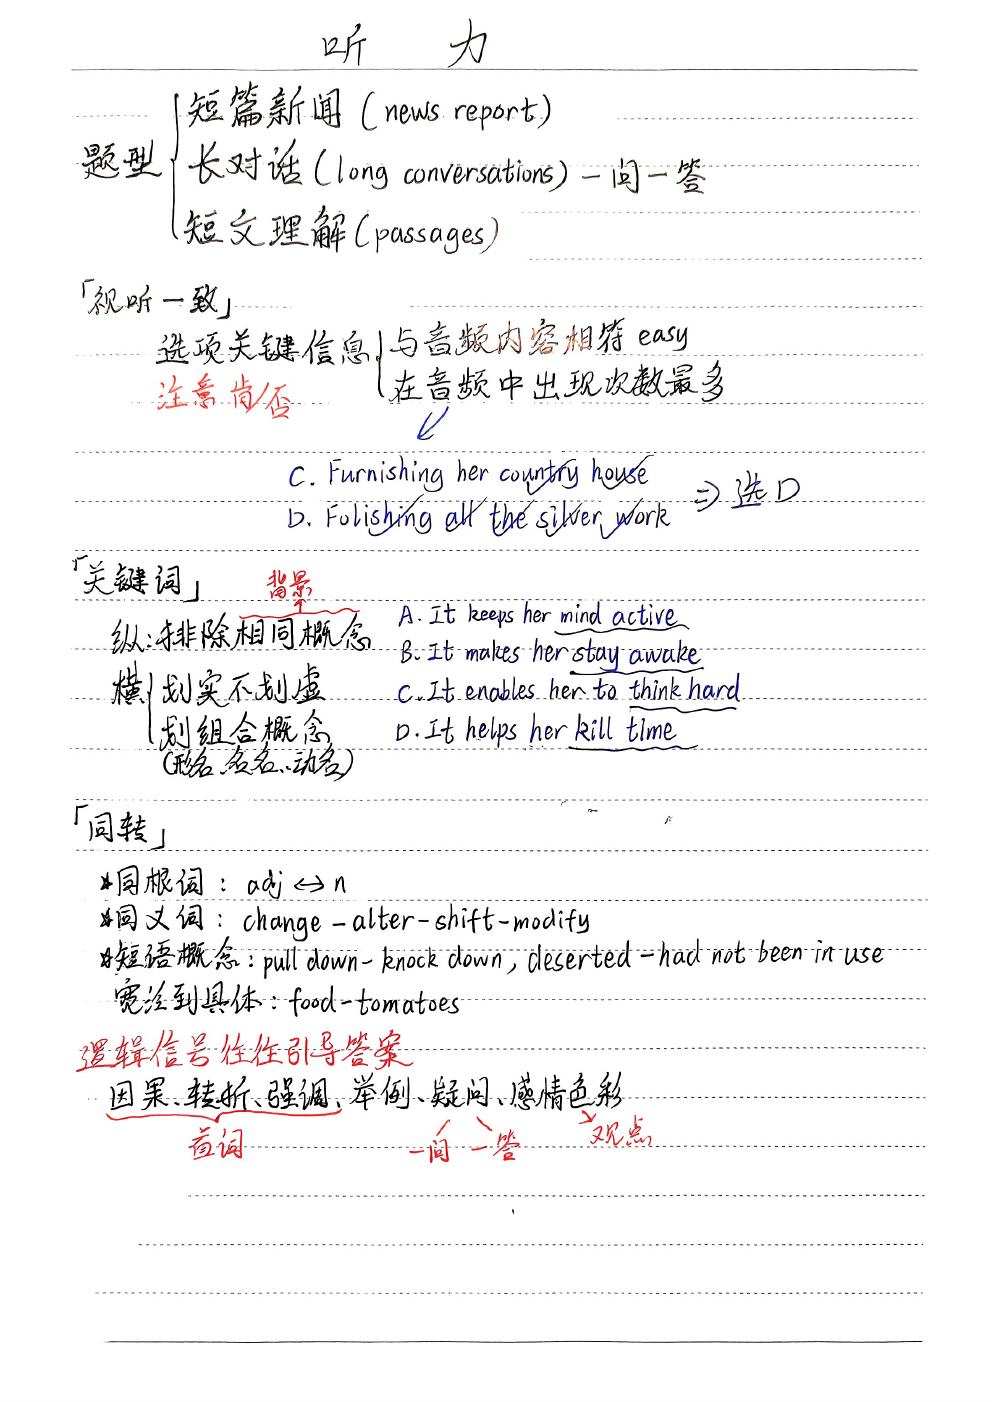 听 力
题型
短篇新闻 (news report)
长对话 (long conversations) 一问一答
短文理解 (passages)
「视听一致」
选项关键信息
与音频内容相符 easy
在音频中出现次数最多
注意肯/否
C. Furnishing her country house
D. Folishing all the silver work
⇒ 选D
「关键词」
背景
纵: 排除相同概念
横
划实不划虚
划组合概念
(形名、名名、动名)
A. It keeps her mind active
B. It makes her stay awake
C. It enables her to think hard
D. It helps her kill time
「同转」
*同根词: adj ↔ n
*同义词: change - alter - shift - modify
*短语概念: pull down - knock down, deserted - had not been in use
宽泛到具体: food - tomatoes
逻辑信号往往引导答案
因果、转折、强调、举例、疑问、感情色彩
首词
一问 一答
观点